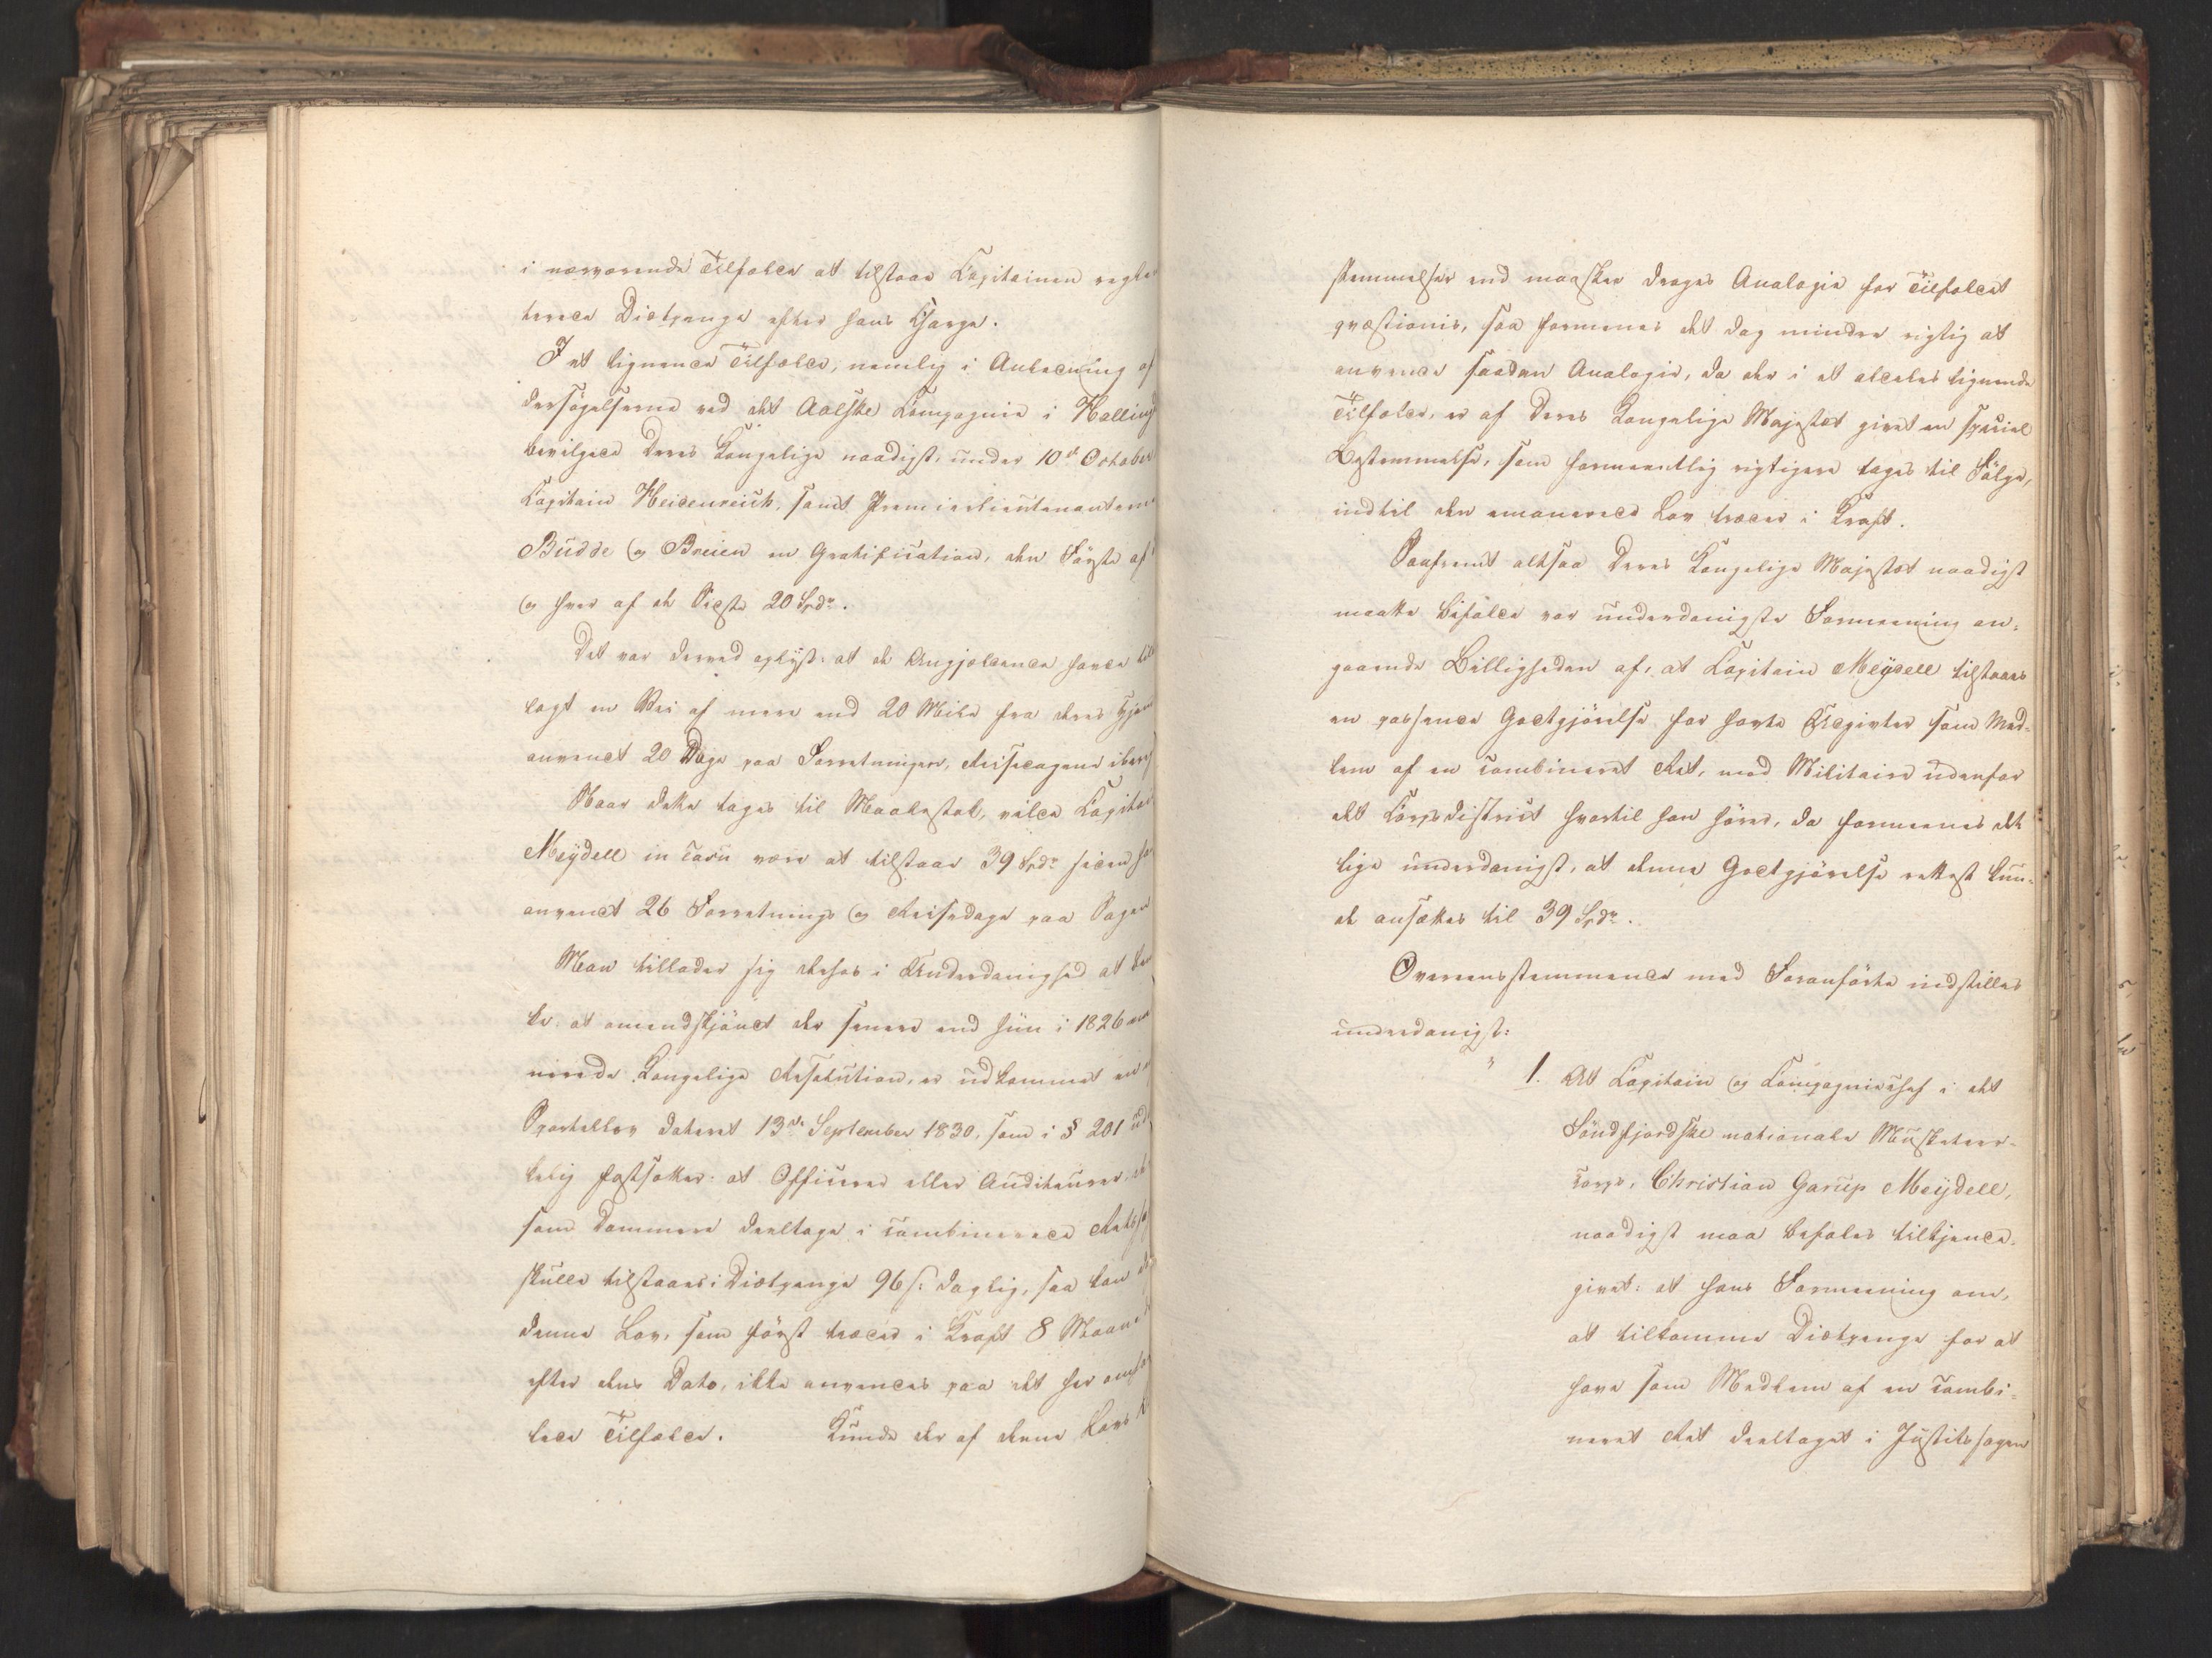 i nærværende Tilfælde at tilstaae Capitainen regle
terede Diætpenge efter hans Charge.
I et lignende Tilfælde, nemlig i Anledning af
dersøgelserne ved det Aalske Compagnie i Halling
bevilgede Deres Kongelige naadigst, under 10de October
Capitain Heidenreich, samt Premierlieutenanterne
Budde og Breien en Gratification, den Første af
og hver af de Sidste 20 Spdr.
Det var derved oplyst: at de Angjeldende havde
lagt en Vei af mere end 20 Mile fra deres Hjem
anvendt 20 Dage paa Forretningen, Reisedagene
Naar dette tages til Maalestok, vilde Capitain
Meydell in casu være at tilstaae 39 Spdr siden
anvendt 26 Forretnings og Reisedage paa Sagen
Man tillader sig dehos i Underdanighed at
ke: at omendskjöndt der senere end hiin i 1826
nerede Kongelige Resolution, er udkommet en
Sportellov dateret 13de September 1830, som i § 201
kelig fastsætter: at Officerer eller Auditeurer,
som Dommere deeltage i combinerede
skulle tilstaaes i Diætpenge 96 s: daglig, saa kan
denne Lov, som først træder i Kraft 8 Maaneder
efter dens Dato, ikke anvendes paa det her
lede Tilfælde. Kunde der af denne Lovs
stemmelser end maaskee drages Analogie for Tilfældet
qvæstionis, saa formenes det dog mindre rigtig at
anvende saadan Analogie, da der i et aldeles lignende
Tilfælde, er af Deres Kongelige Majestæt givet en special
Bestemmelse, som formeentlig rigtigere tages til Følge,
indtil den emanerede Lov træder i Kraft.
Saafremt altsaa Deres Kongelige Majestæt naadigst
maatte bifalde vor underdanigste Formeening an-
gaaende Billigheden af, at Capitain Meydell tilstaaes
en passende Godtgjörelse for havte Udgivter som Med-
lem af en combineret Ret, med Militaire udenfor
det Corpsdistrict hvortil han hører, da formeenes det
lige underdanigst, at denne Godtgjörelse rettest kun-
de ansættes til 39 Spdr.
Overeensstemmende med Foranførte indstilles
underdanigst:
" 1. At Capitain og Compagniechef i det
Söndfjordske nationale Musketeer-
corps, Christian Garup Meydell,
naadigst maa befales tilkjende-
givet: at hans Formeening om,
at tilkomme Diætpenge for at
have som Medlem af en combi-
neret Ret deeltaget i Justitssagen